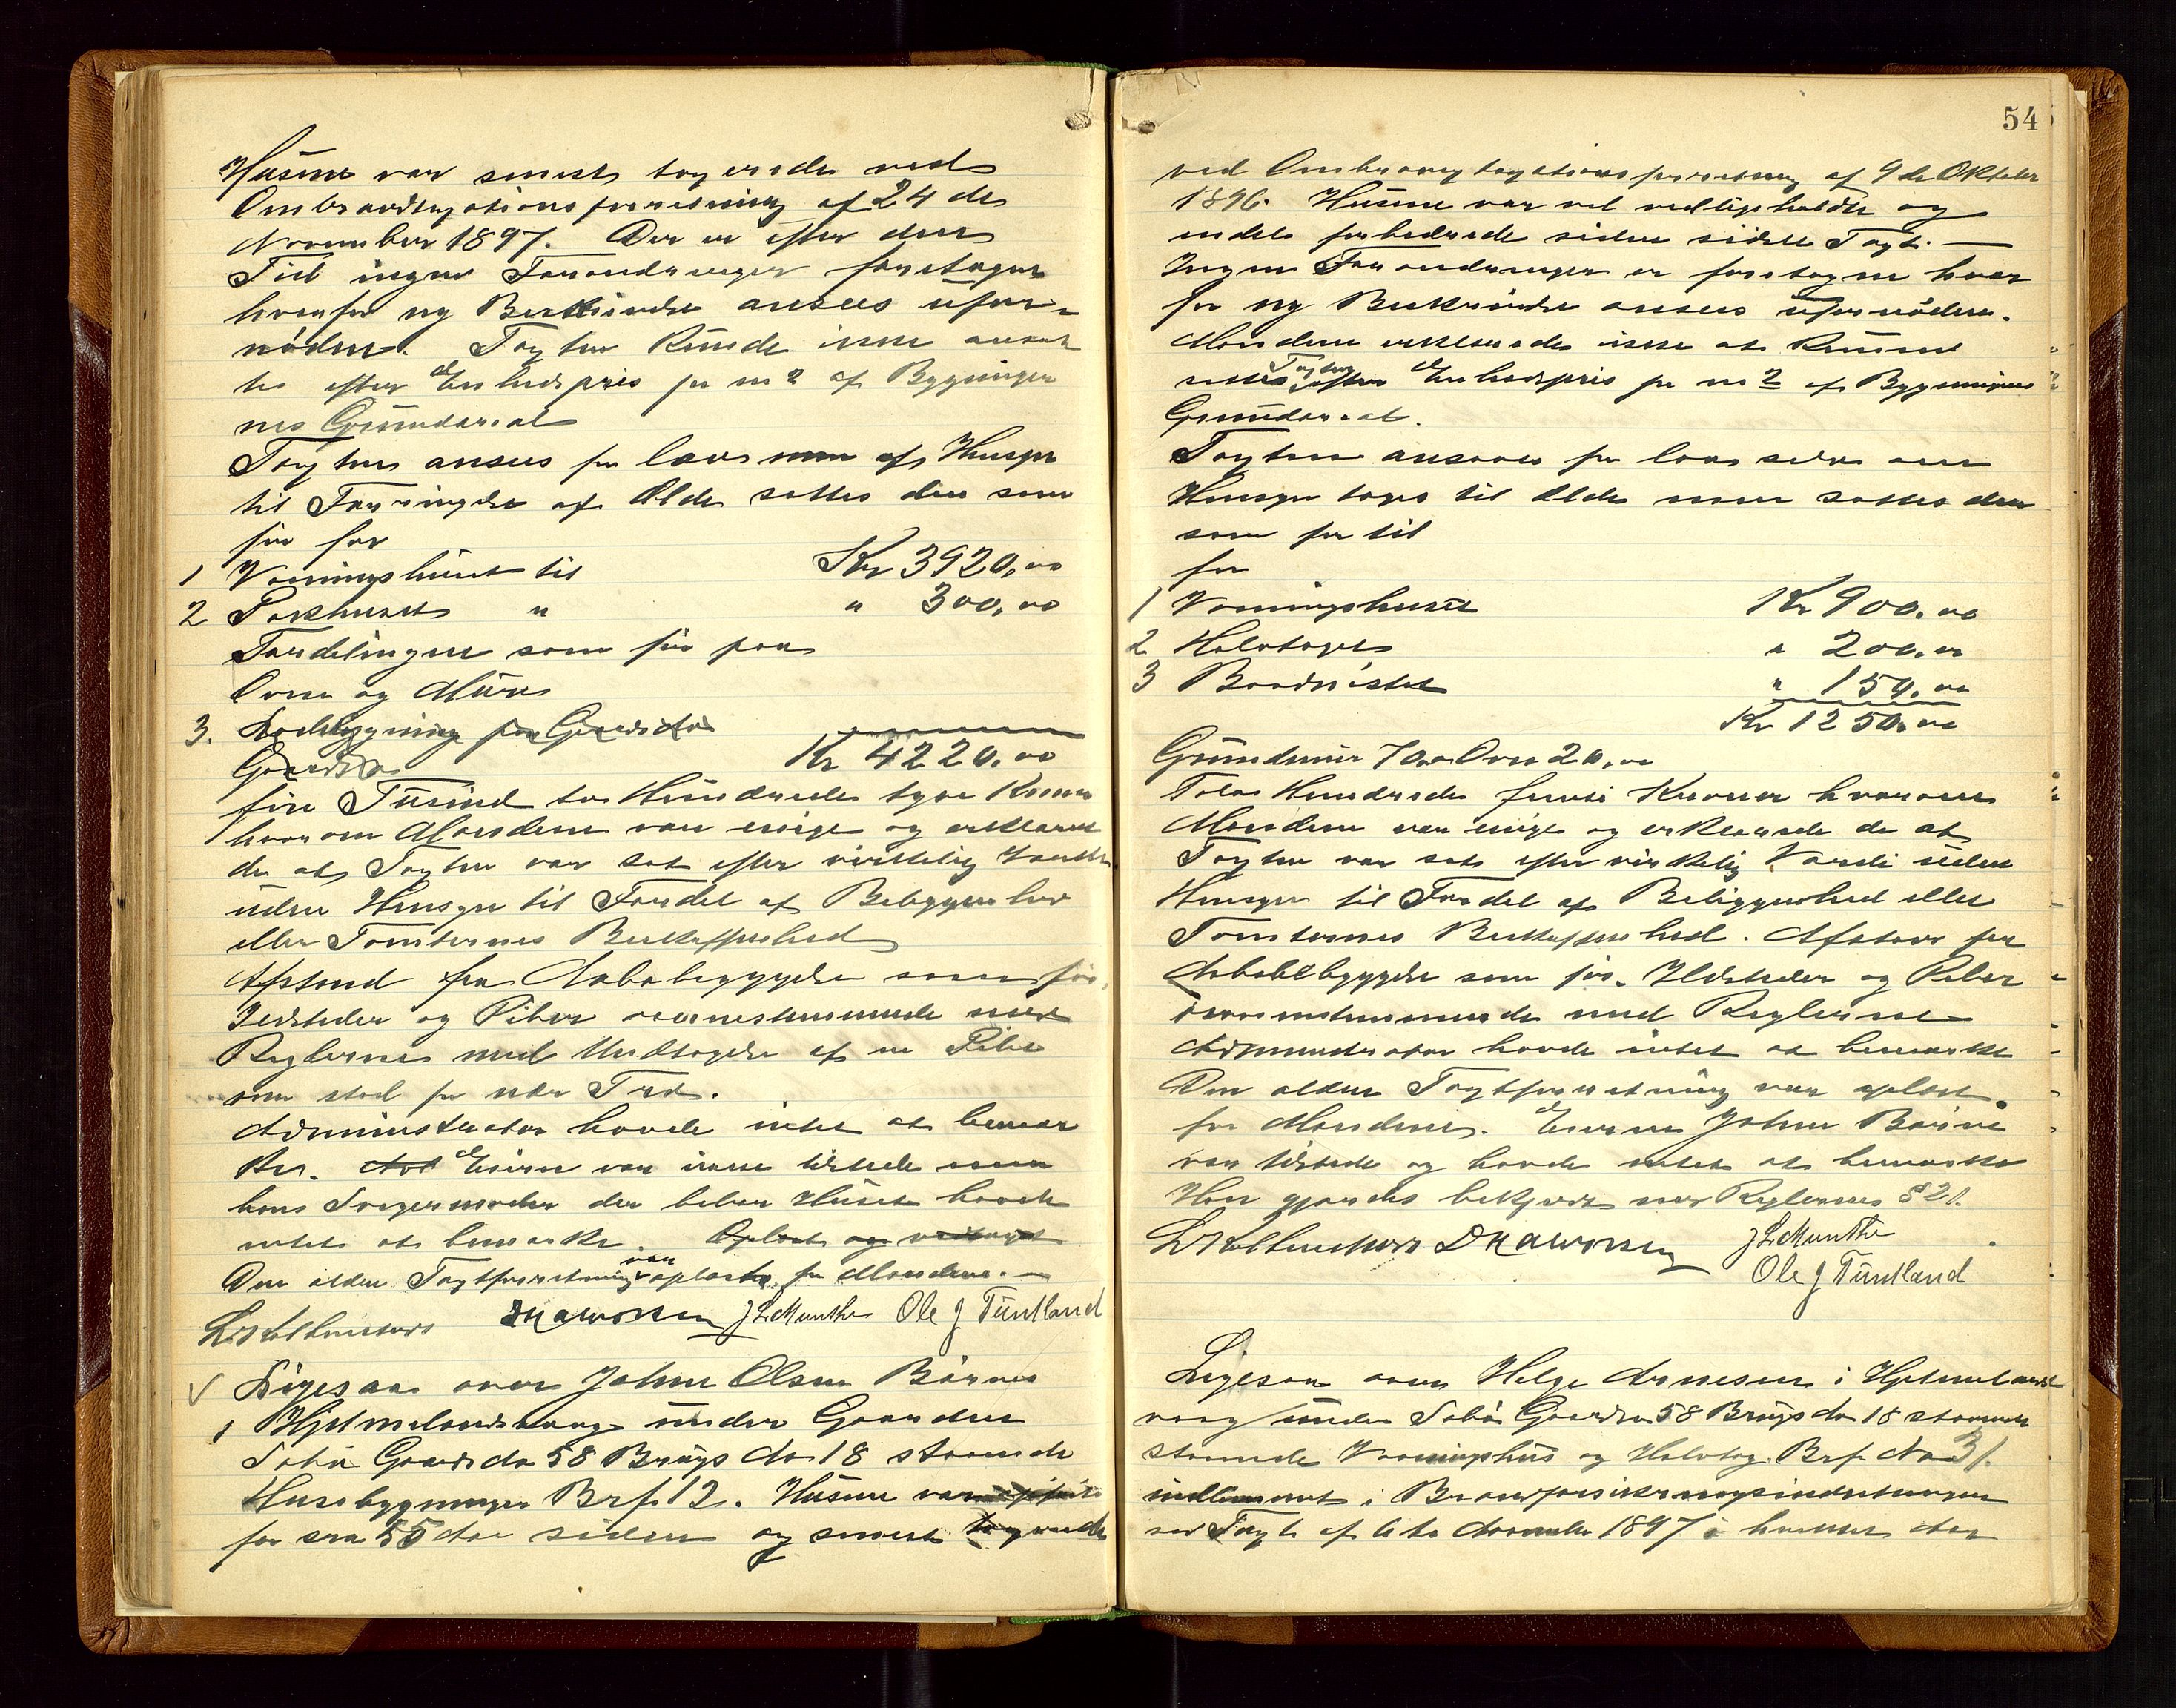 Husene var senest taxerede ved
Ombrandtaxationsforretning af 24 de
November 1897. Der er efter den
Tid ingen Forandringer foretagne
hvorfor ny Beskrivelse ansees ufor-
nøden. Taxten kunde ikke ansæt
tes efter Enhedspris pr m2 af Bygninger
nes Grundareal
Taxten ansees for lav men af Hensyn
til Forringelse af Ælde sattes den som
før for
1 Vaaningshuset til Kr 3920,00
2 Pakhuset " " 300,00
Fordelingen som før paa
Ovne og Mure
3.
Kr 4220,00
fire Tusind to Hundrede tyve Kroner
hvorom Mændene var enige og erklærede
de at Taxten var sat efter virkelig Værdi
uden Hensyn til Fordel af Beliggenhed
eller Tomternes Beskaffenhed
Afstand fra Nabobebyggelse som før.
Ildsteder og Piber overensstemmende med
Reglerne med Undtagelse af en Pibe
som stod for nær Træ.
Administrator havde intet at bemær
ke. Eieren var ikke tilstede men
hans Svigermoder der bebor Huset havde
intet at bemærke. Oplæst og vedtaget
Den ældre Taxtforretning var oplæst for Mændene.—
J L Munthe Ole J Tuntland
V Ligesaa over Johne Olsen Børnes
i Hjelmelandsvaag under Gaarden
Sæbø Gaards No 58 Brugs No 18 staaende
Husebygninger Brf. 12. Husene var
for ca 55 Aar siden og senest taxerede
54
ved Ombrandtaxationsforretning af 9 de Oktober
1896. Husene var vel vedligeholdte og
endel forbedrede siden sidste Taxt.—
Ingen Forandringer er foretagne hvor
for ny Beskrivelse ansees ufornøden.
Mændene erklærede ikke at kunne
sætte Taxten efter Enhedspris pr m2 af Bygningernes
Grundareal.
Taxten ansaaes for lav selv om
Hensyn toges til Ælde men sattes den
som før til
for
1 Vaaningshuset Kr 900,00
2 Halvtaget " 200,00
3 Baadnøstet " 150,00
Kr 1250,00
Grundmur 70,00 Ovn 20,00
Tolv Hundrede femti Kroner hvorom
Mændene var enige og erklærede de at
Taxten var sat efter virkelig Værdi uden
Hensyn til Fordel af Beliggenhed eller
Tomternes Beskaffenhed. Afstand fra
Nabobebyggelse som før. Ildsteder og Piber
overensstemmende med Reglerne
Administrator havde intet at bemærke
Den ældre Taxtforretning var oplæst
for Mændene. Eieren Johne Børnes
var tilstede og havde intet at bemærke
Han gjordes bekjendt med Reglernes § 21.
J L Munthe
Ole J Tuntland
Ligesaa over Helge Arnesen i Hjelmelands
vaag under Sæbø Gaards No 58 Brugs No 18
staaende Vaaningshus og Halvtag Brf. No 31.
indlemmet i Brandforsikringsindretningen
ved Taxt af 6te November 1897 i hvilket Aar